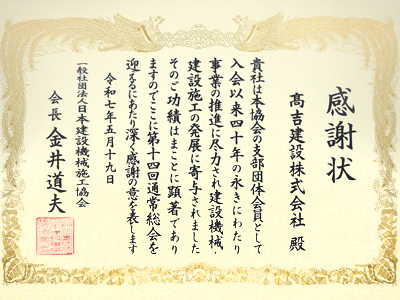 感謝状
髙吉建設株式会社 殿
貴社は本協会の支部団体会員として
入会以来四十年の永きにわたり
事業の推進に尽力され建設機械
建設施工の発展に寄与されました
そのご功績はまことに顕著であり
ますのでここに第十四回通常総会を
迎えるにあたり深く感謝の意を表します
令和七年五月十九日
一般社団法人日本建設機械施工協会
会長 金井道夫